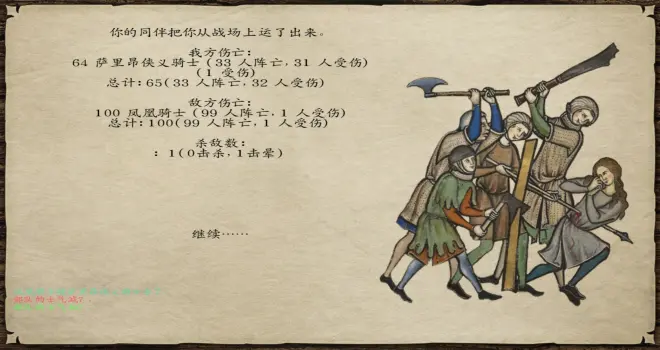 你的同伴把你从战场上运了出来。
我方伤亡:
64 萨里昂侠义骑士 (33 人阵亡, 31 人受伤)
(1 受伤)
总计: 65(33 人阵亡, 32 人受伤)
敌方伤亡:
100 凤凰骑士 (99 人阵亡, 1 人受伤)
总计: 100(99 人阵亡, 1 人受伤)
杀敌数:
: 1(0击杀, 1击晕)
继续……
部队的士气减7.